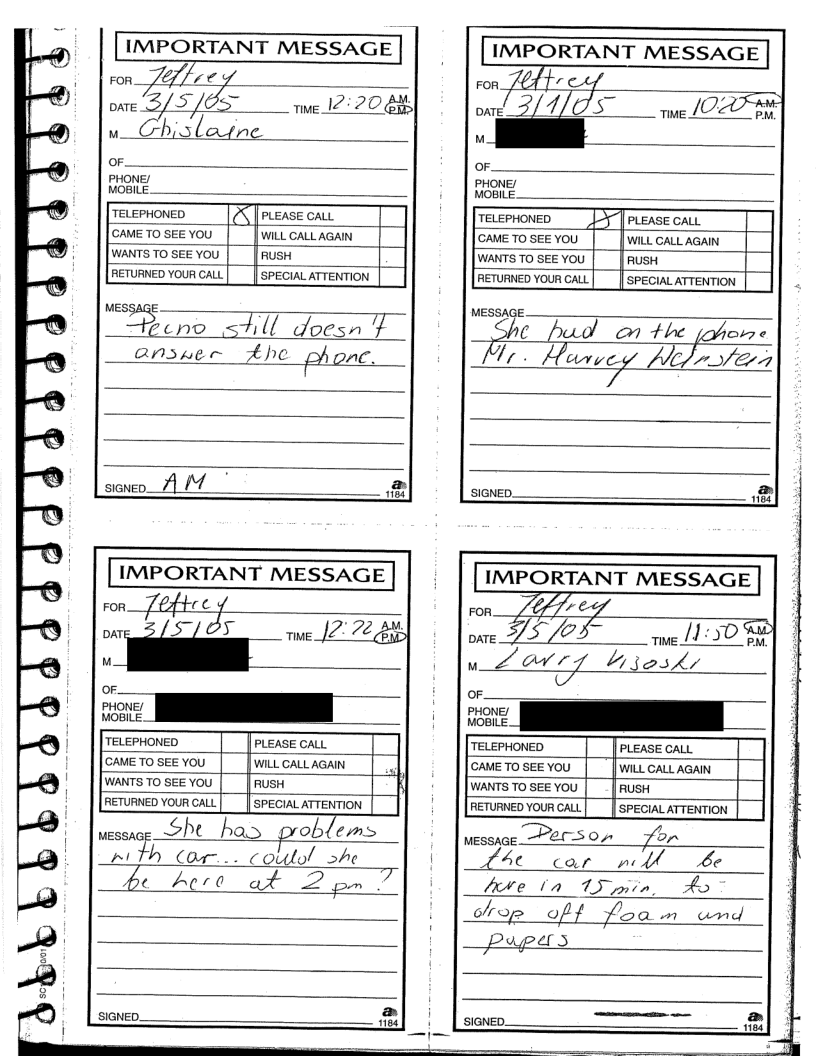 IMPORTANT MESSAGE
FOR Jeffrey
DATE 3/5/05 TIME 12:20 A.M. P.M.
M Ghislaine
OF
PHONE/
MOBILE
TELEPHONED X PLEASE CALL
CAME TO SEE YOU WILL CALL AGAIN
WANTS TO SEE YOU RUSH
RETURNED YOUR CALL SPECIAL ATTENTION
MESSAGE
still doesn't
answer the phone.
SIGNED AM
a
1184
IMPORTANT MESSAGE
FOR Jeffrey
DATE 3/1/05 TIME 10:20 A.M. P.M.
M
OF
PHONE/
MOBILE
TELEPHONED X PLEASE CALL
CAME TO SEE YOU WILL CALL AGAIN
WANTS TO SEE YOU RUSH
RETURNED YOUR CALL SPECIAL ATTENTION
MESSAGE
She had on the phone
Mr. Harvey Weinstein
SIGNED
a
1184
IMPORTANT MESSAGE
FOR Jeffrey
DATE 3/5/05 TIME 12:22 A.M. P.M.
M
OF
PHONE/
MOBILE
TELEPHONED PLEASE CALL
CAME TO SEE YOU WILL CALL AGAIN
WANTS TO SEE YOU RUSH
RETURNED YOUR CALL SPECIAL ATTENTION
MESSAGE She has problems
with car... could she
be here at 2 pm?
SIGNED
a
1184
IMPORTANT MESSAGE
FOR Jeffrey
DATE 3/5/05 TIME 11:50 A.M. P.M.
M Larry Visoski
OF
PHONE/
MOBILE
TELEPHONED PLEASE CALL
CAME TO SEE YOU WILL CALL AGAIN
WANTS TO SEE YOU RUSH
RETURNED YOUR CALL SPECIAL ATTENTION
MESSAGE Person for
the car will be
here in 15 min. to
drop off foam and
papers
SIGNED
a
1184